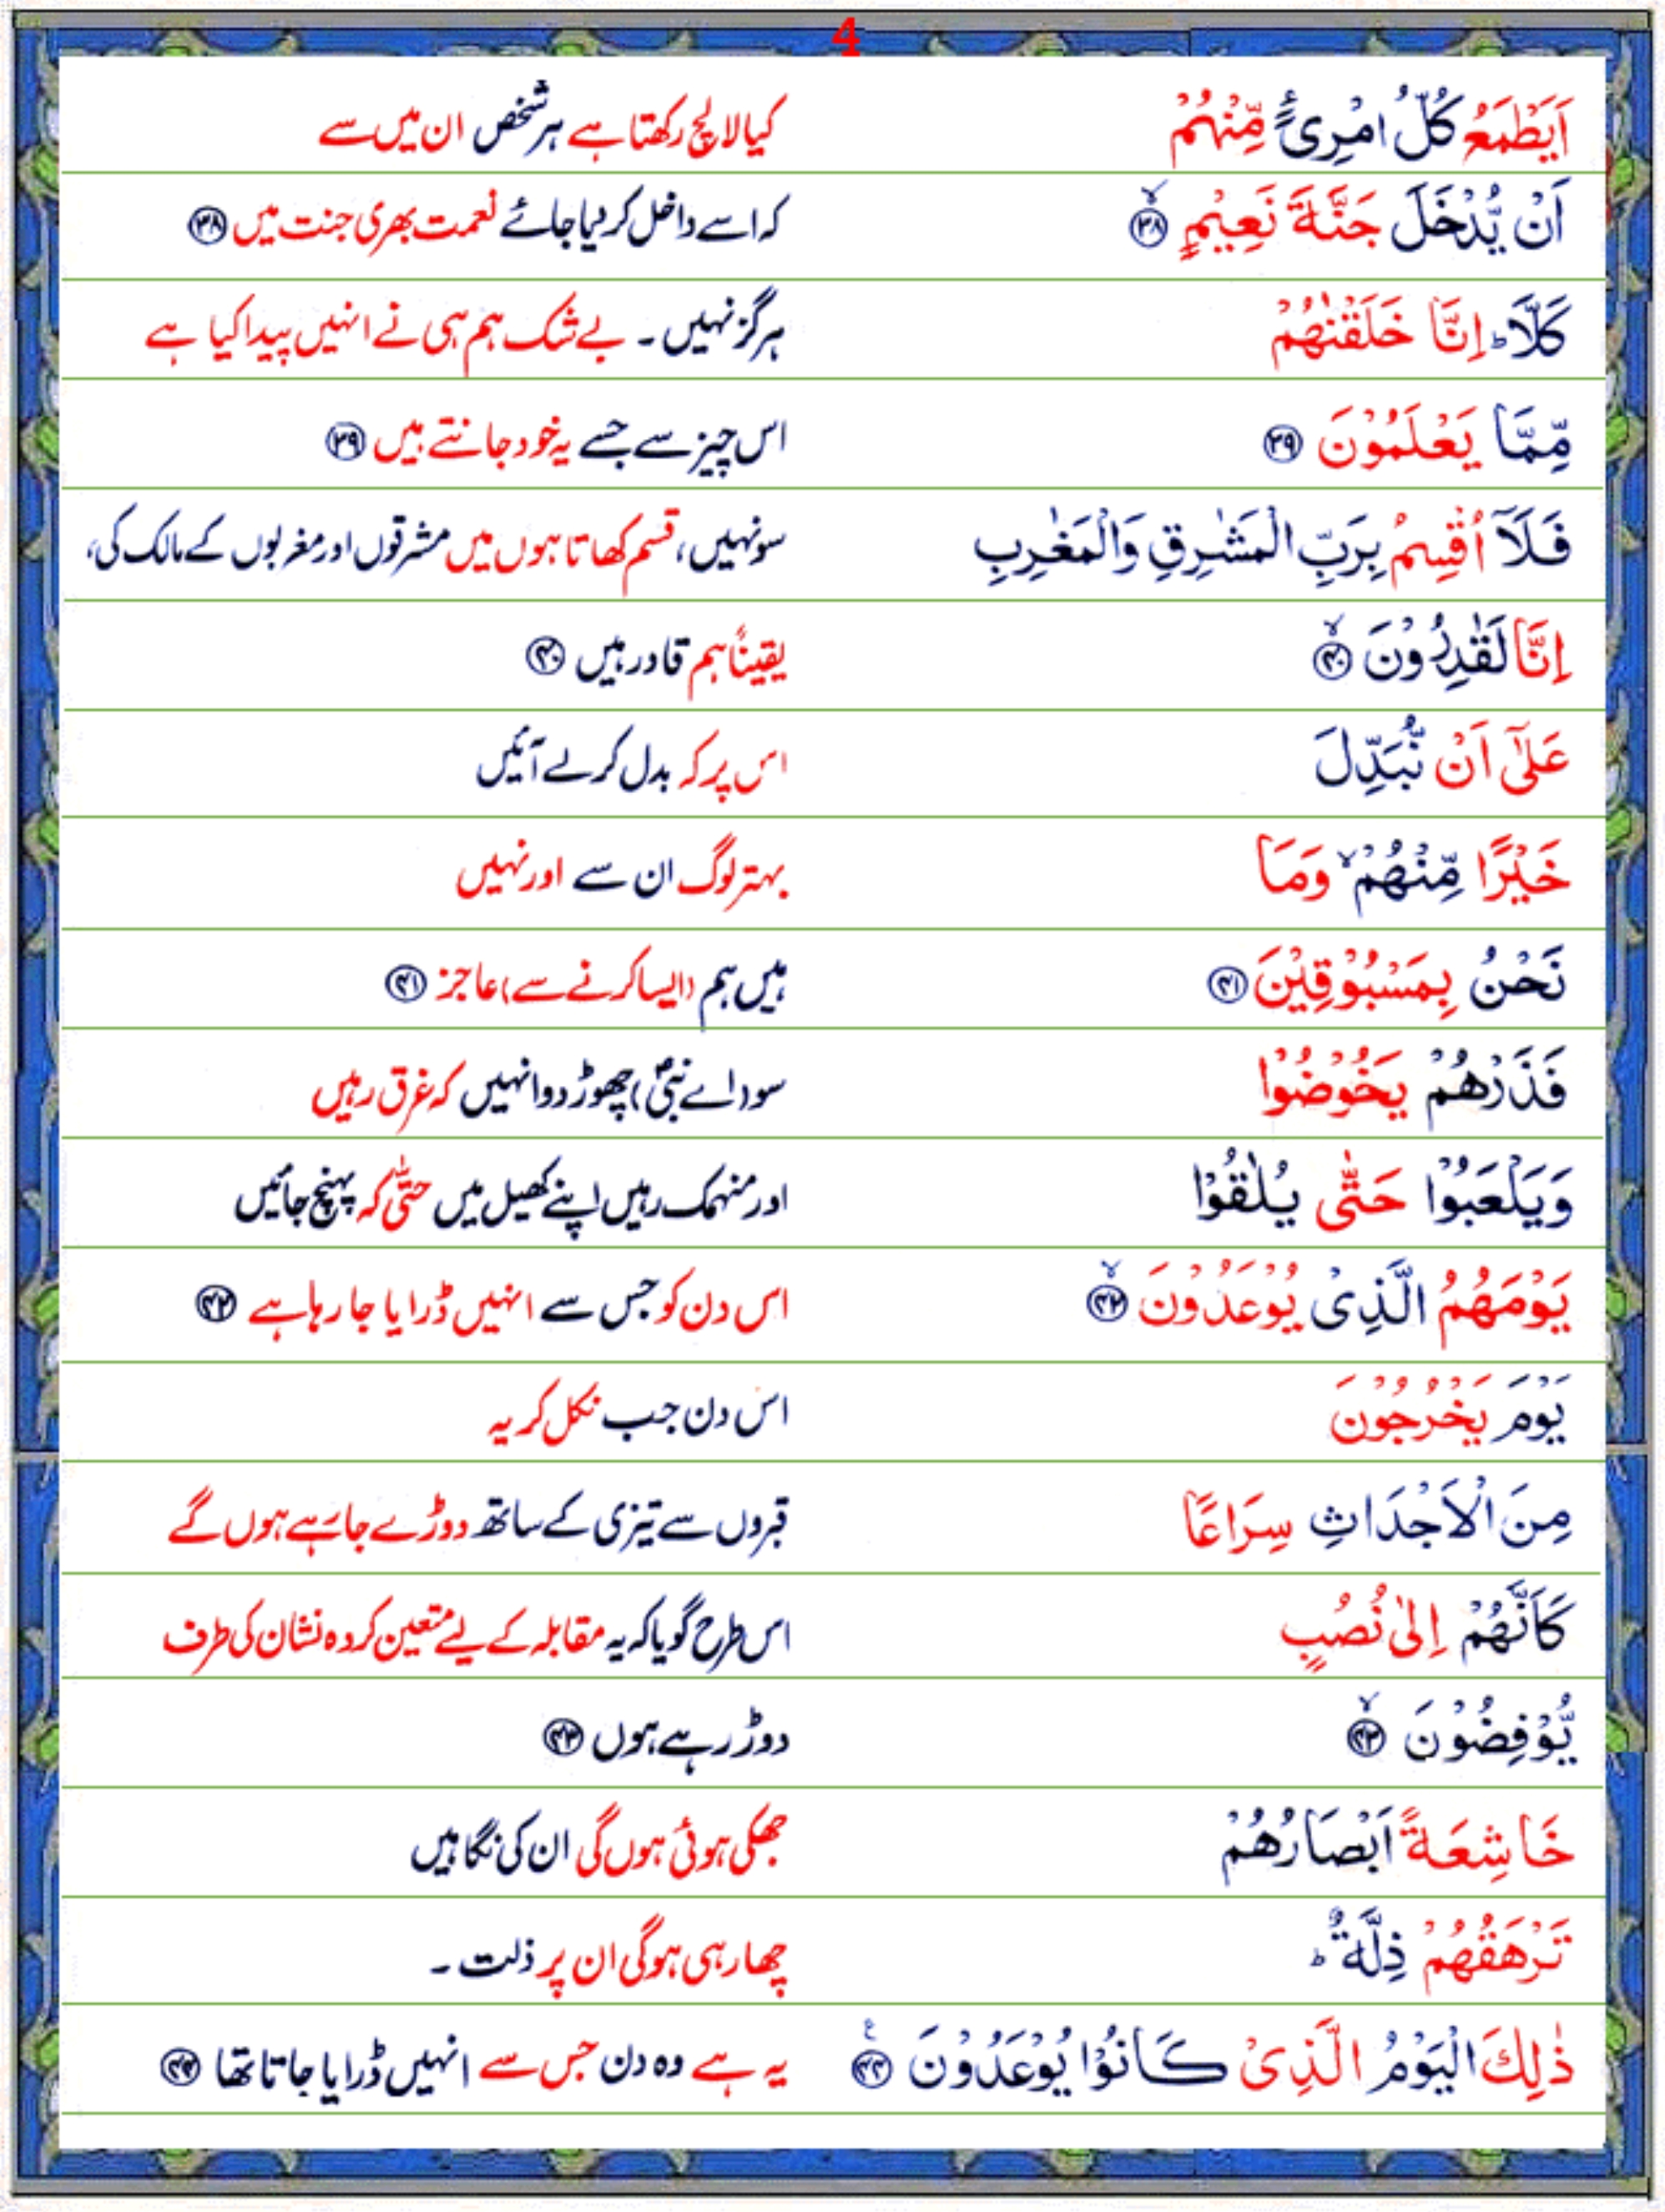 4
اَيَطْمَعُ كُلُّ امْرِیٴٍ مِّنْهُمْ کیا لالچ رکھتا ہے ہر شخص ان میں سے
اَنْ يُّدْخَلَ جَنَّةَ نَعِيْمٍ ۙ﴿۳۸﴾ کہ اسے داخل کر دیا جائے نعمت بھری جنت میں ﴿۳۸﴾
كَلَّا ؕ اِنَّا خَلَقْنٰهُمْ ہرگز نہیں ۔ بے شک ہم ہی نے انہیں پیدا کیا ہے
مِّمَّا يَعْلَمُوْنَ ﴿۳۹﴾ اس چیز سے جسے یہ خود جانتے ہیں ﴿۳۹﴾
فَلَاۤ اُقْسِمُ بِرَبِّ الْمَشٰرِقِ وَالْمَغٰرِبِ سو نہیں، قسم کھاتا ہوں میں مشرقوں اور مغربوں کے مالک کی،
اِنَّا لَقٰدِرُوْنَ ۙ﴿۴۰﴾ یقیناً ہم قادر ہیں ﴿۴۰﴾
عَلٰۤى اَنْ نُّبَدِّلَ اس پر کہ بدل کر لے آئیں
خَيْرًا مِّنْهُمْ ۙ وَمَا بہتر لوگ ان سے اور نہیں
نَحْنُ بِمَسْبُوْقِيْنَ ﴿۴۱﴾ ہیں ہم (ایسا کرنے سے) عاجز ﴿۴۱﴾
فَذَرْهُمْ يَخُوْضُوْا سو (اے نبیؐ) چھوڑ دو انہیں کہ غرق رہیں
وَيَلْعَبُوْا حَتّٰى يُلٰقُوْا اور منہمک رہیں اپنے کھیل میں حتّٰی کہ پہنچ جائیں
يَوْمَهُمُ الَّذِىْ يُوْعَدُوْنَ ۙ﴿۴۲﴾ اس دن کو جس سے انہیں ڈرایا جا رہا ہے ﴿۴۲﴾
يَوْمَ يَخْرُجُوْنَ اس دن جب نکل کر یہ
مِنَ الْاَجْدَاثِ سِرَاعًا قبروں سے تیزی کے ساتھ دوڑے جا رہے ہوں گے
كَاَنَّهُمْ اِلٰى نُصُبٍ اس طرح گویا کہ یہ مقابلہ کے لیے متعین کردہ نشان کی طرف
يُّوْفِضُوْنَ ۙ﴿۴۳﴾ دوڑ رہے ہوں ﴿۴۳﴾
خَاشِعَةً اَبْصَارُهُمْ جھکی ہوئی ہوں گی ان کی نگاہیں
تَرْهَقُهُمْ ذِلَّةٌ ؕ چھا رہی ہوگی ان پر ذلت ۔
ذٰلِكَ الْيَوْمُ الَّذِىْ كَانُوْا يُوْعَدُوْنَ ﴿۴۴﴾ یہ ہے وہ دن جس سے انہیں ڈرایا جاتا تھا ﴿۴۴﴾